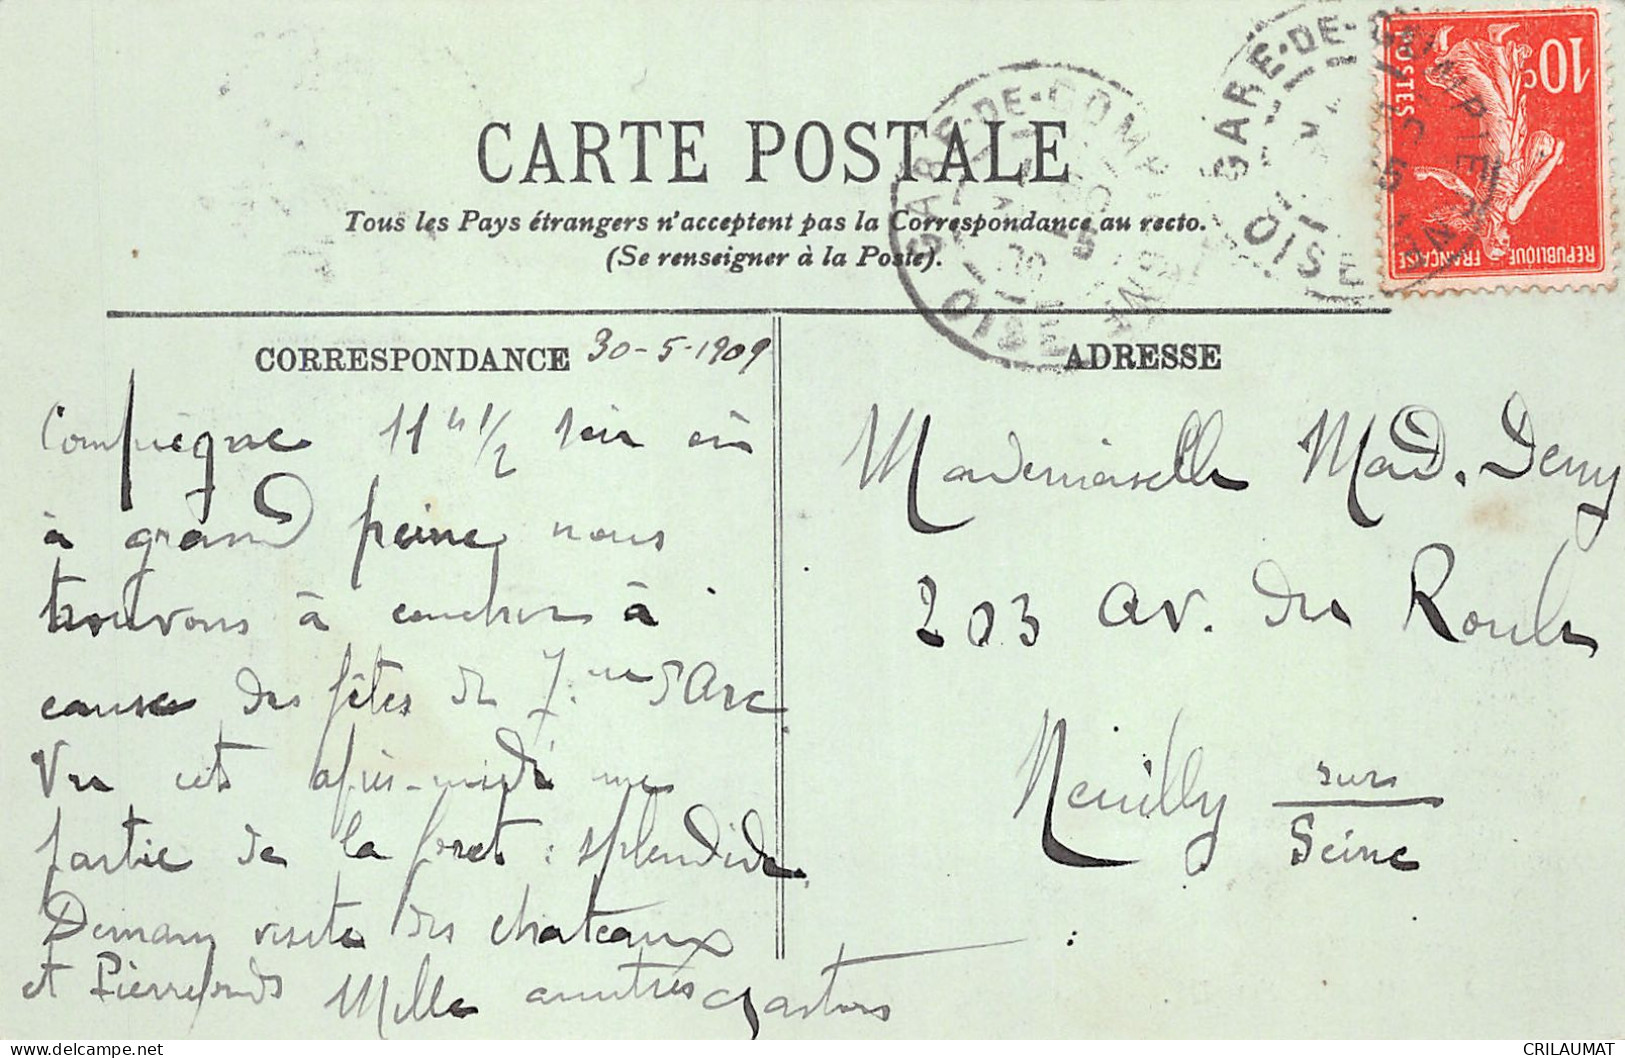 CARTE POSTALE
Tous les Pays étrangers n'acceptent pas la Correspondance au recto.
(Se renseigner à la Poste).
GARE-DE-COMPIEGNE
OISE
GARE-DE-COMPIEGNE
OISE
10c
POSTES
REPUBLIQUE FRANÇAISE
CORRESPONDANCE 30-5-1909
Compiègne 11 h 1/2 soir où
à grand peine nous
trouvons à coucher à
cause des fêtes de J.ne d'Arc
Vu cet après-midi une
partie de la foret : splendide.
Demain visite des chateaux
et Pierrefonds Mille amitiés Gaston
ADRESSE
Mademoiselle Mad. Deny
203 av. du Roule
Neuilly sur
Seine
CRILAUMAT